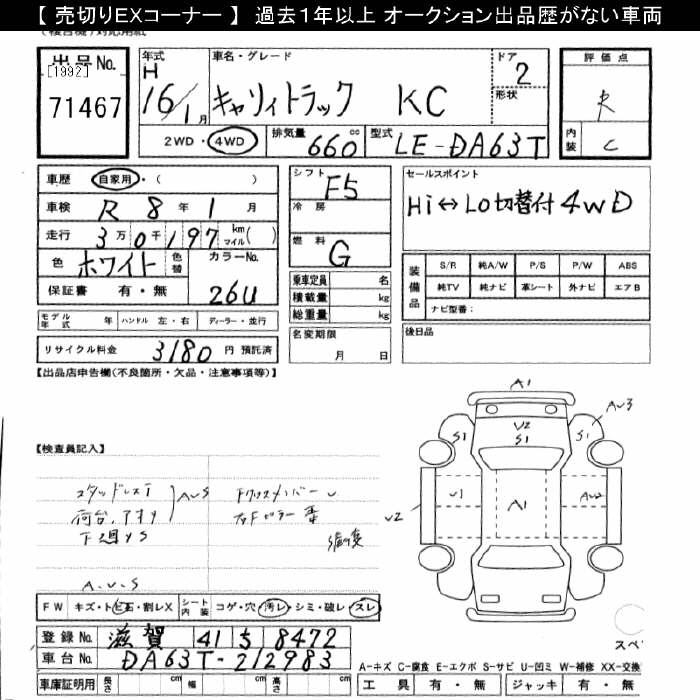 【 売切りEXコーナー 】 過去１年以上 オークション出品歴がない車両
出品No.
[1992]
71467
年式
H
16/1月
車名・グレード
キャリィトラック KC
ドア
2
形状
評価点
R
内装
C
2WD・4WD
排気量
660cc
型式
LE-DA63T
車歴 自家用・( )
車検 R 8年 1月
走行 3万0千197 km マイル( )
色 ホワイト 色替 カラーNo.
保証書 有・無 26U
モデル年式 年 ハンドル 左・右 ディーラー・並行
リサイクル料金 3180円 預託済
シフト F5
冷房
燃料 G
乗車定員 名
積載量 kg
総重量 kg
名変期限
月 日
セールスポイント
Hi↔Lo切替付 4WD
装備品
S/R 純A/W P/S P/W ABS
純TV 純ナビ 革シート 外ナビ エアB
ナビ型番：
後日品
【出品店申告欄(不良箇所・欠品・注意事項等)】
【検査員記入】
スタッドレス
荷台
A.U.S
A1
AU3
S1
U2
S1
S1
U1
A1
AU2
U2
FW キズ・ト石・割レX
シート内装 コゲ・穴・汚レ・シミ・破レ・スレ
登録No. 滋賀 41 5 8472
車台No. DA63T-212983
車庫証明用 長さ cm 幅 cm 高さ cm
スペ
A-キズ C-腐食 E-エクボ S-サビ U-凹ミ W-補修 XX-交換
工具 有・無 ジャッキ 有・無